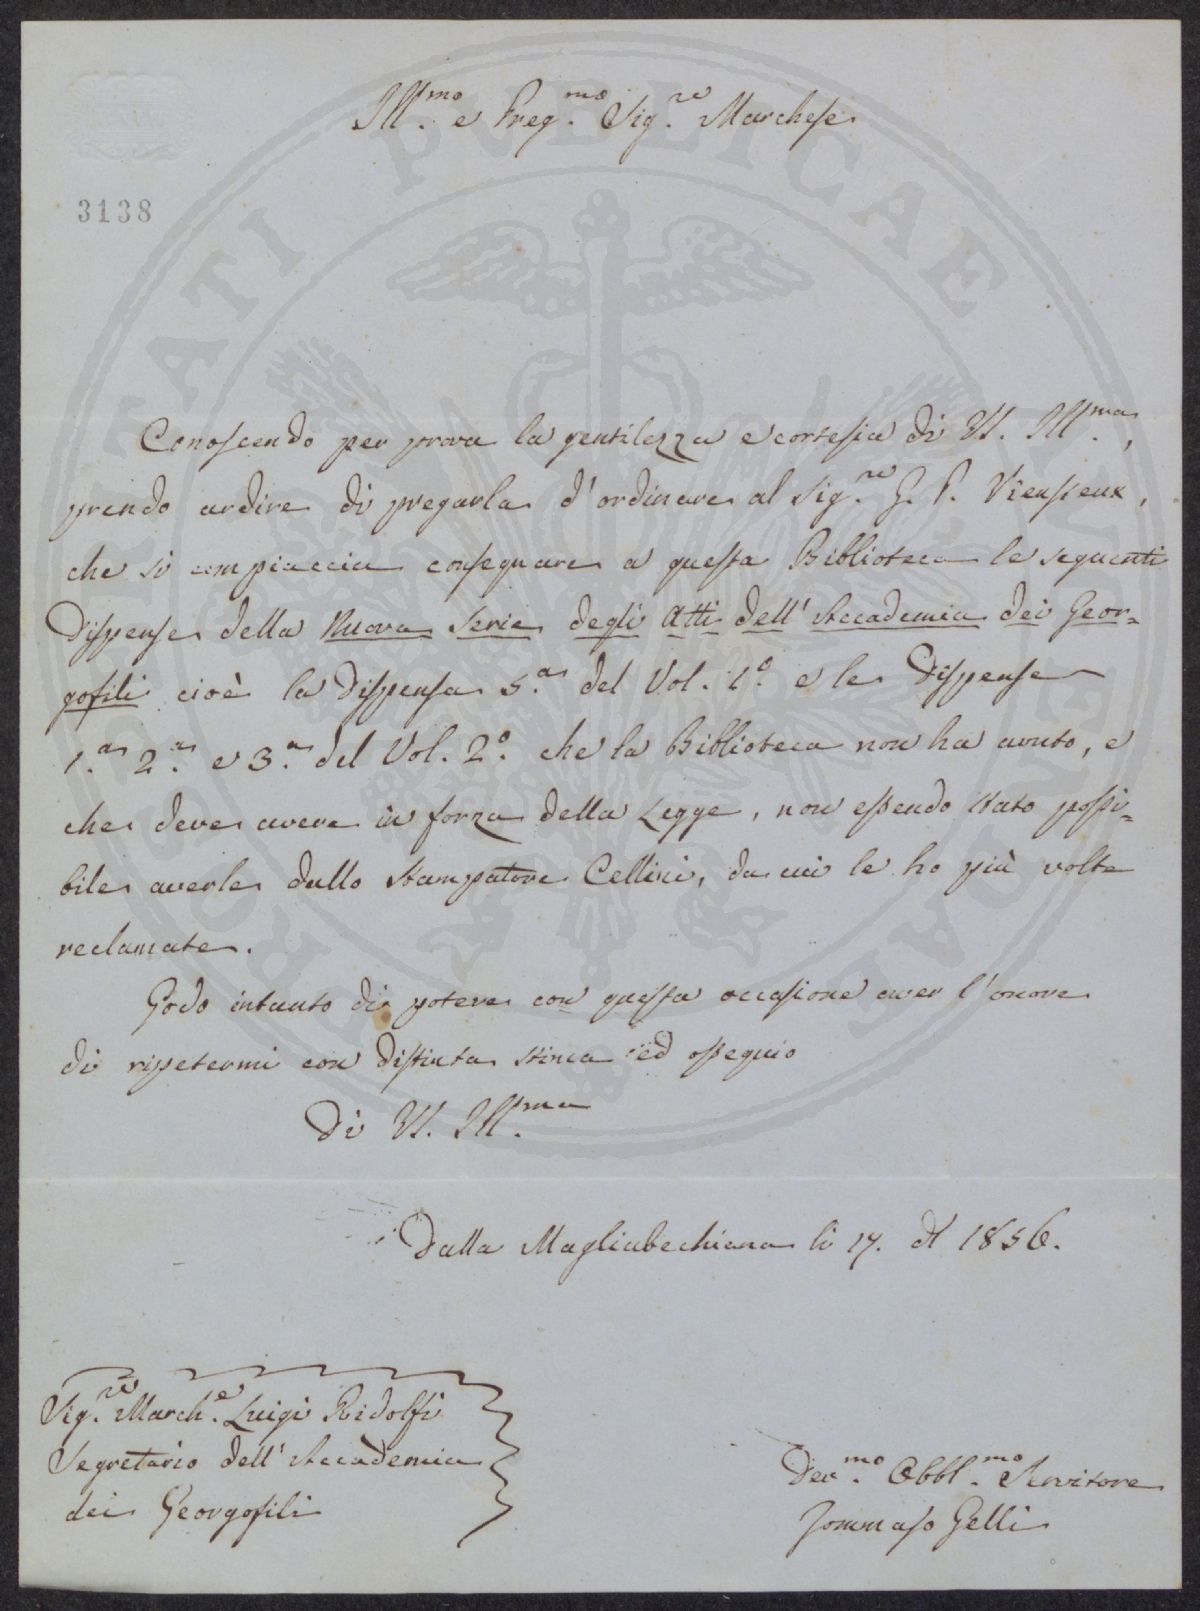 Ill.mo e Preg.mo Sig.re Marchese
3138
PROSPERITATI PUBLICAE AUGENDAE
Conoscendo per prova la gentilezza e cortesia di VS. Ill.ma,
prendo ardire di pregarla d'ordinare al Sig.re G. P. Vieusseux,
che si compiaccia consegnare a questa Biblioteca le seguenti
Dispense della Nuova Serie degli Atti dell'Accademia dei Geor=
gofili cioè la Dispensa 5.a del Vol. 1.o e le Dispense
1.a 2.a e 3.a del Vol. 2.o che la Biblioteca non ha avuto, e
che deve avere in forza della Legge, non essendo stato possi=
bile averle dallo Stampatore Cellini, da cui le ho più volte
reclamate.
Godo intanto di potere con questa occasione aver l'onore
di ripetermi con distinta stima ed ossequio
Di VS. Ill.ma
Dalla Magliabechiana li 17. 1856.
Sig.re March.e Luigi Ridolfi
Segretario dell'Accademia
dei Georgofili
Dev.mo Obbl.mo Servitore
Tommaso Gelli